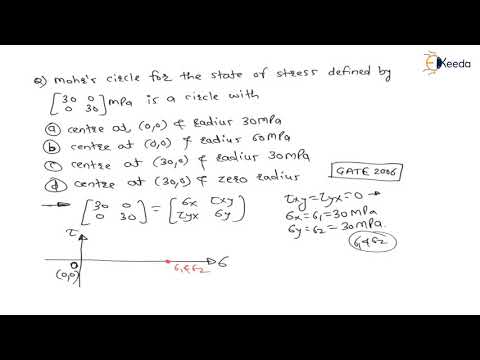 Ekeeda
Q) Mohr's circle for the state of stress defined by
[30 0
0 30] mpa is a circle with
(a) centre at (0,0) & radius 30mpa
(b) centre at (0,0) & radius 60mpa
(c) centre at (30,0) & radius 30mpa
(d) centre at (30,0) & zero radius
GATE 2006
[30 0
0 30] = [σx τxy
τyx σy]
τxy=τyx=0
σx=σ1=30mpa
σy=σ2=30mpa.
σ1&σ2
τ
σ1&σ2
σ
0
(0,0)